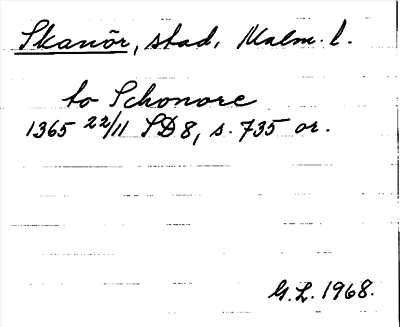 Skanör, stad, Malm. l.
to Schonore
1365 22/11 SD 8, s. 735 or.
G.L. 1968.